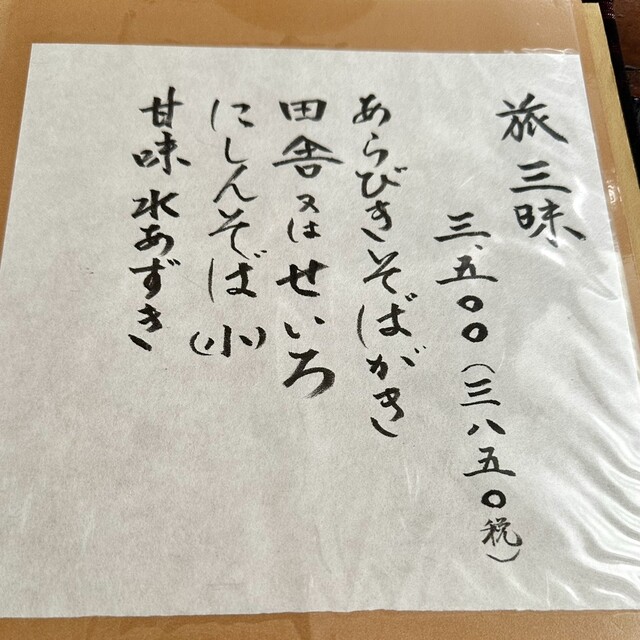 旅三昧
三、五〇〇(三八五〇税)
あらびきそばがき
田舎又はせいろ
にしんそば(小)
甘味 水あずき